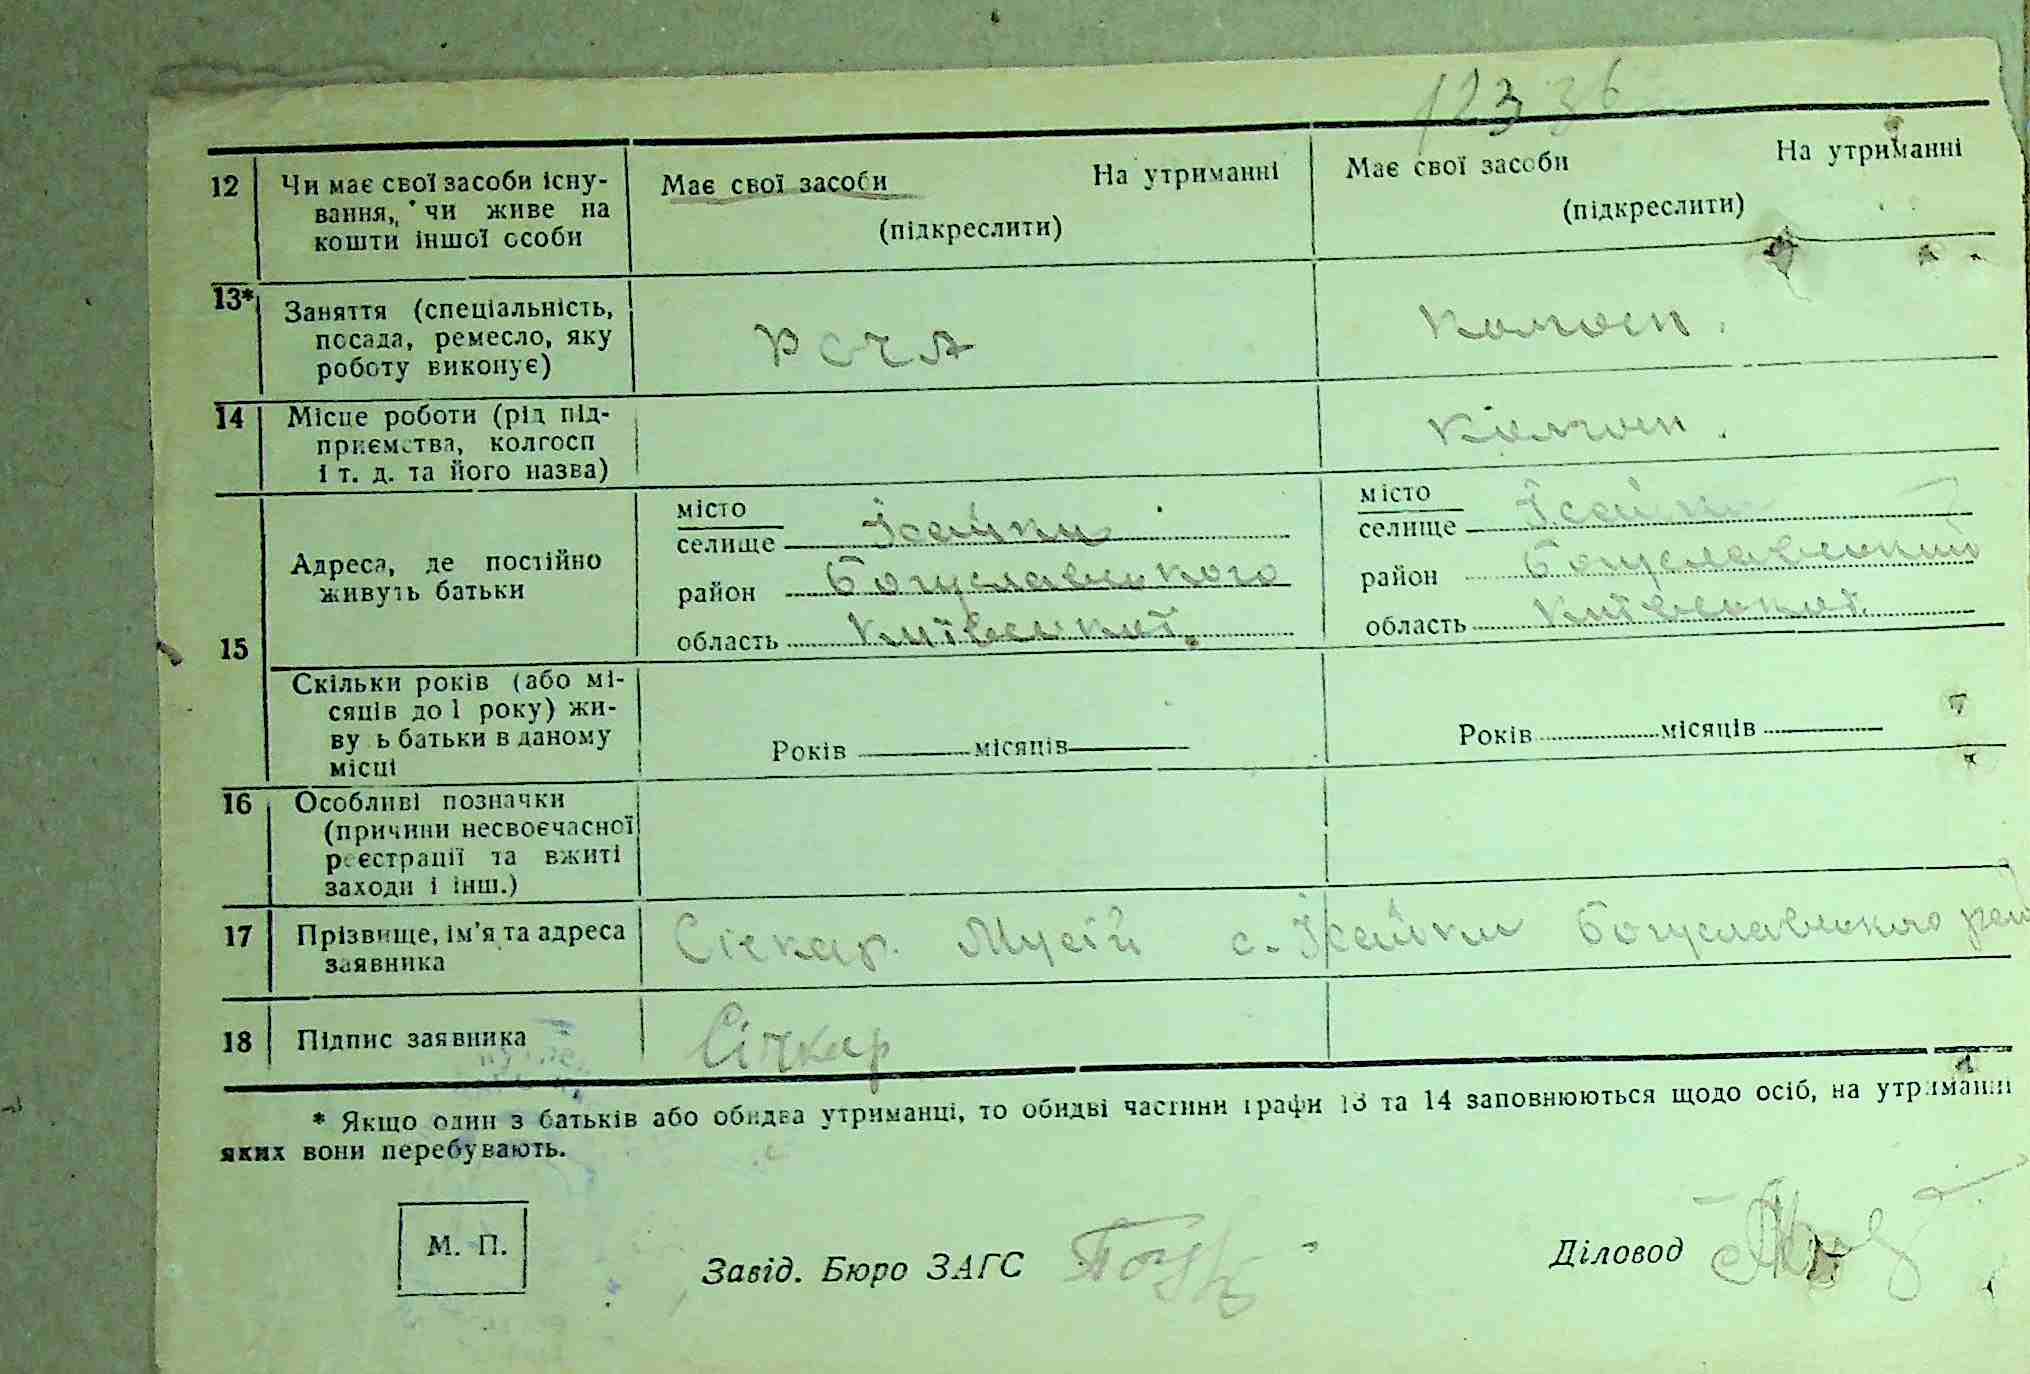 12336
12 Чи має свої засоби існу- Має свої засоби На утриманні Має свої засоби На утриманні
вання, чи живе на (підкреслити) (підкреслити)
кошти іншої особи
13* Заняття (спеціальність, РСЧА Колгосп.
посада, ремесло, яку
роботу виконує)
14 Місце роботи (рід під- Колгосп.
приємства, колгосп
і т. д. та його назва)
15 Адреса, де постійно живуть батьки
місто
селище Ісайки
район Богуславського
область Київської.
місто
селище Ісайки
район Богуславський
область Київської.
Скільки років (або мі-
сяців до 1 року) жи-
ву ь батьки в даному
місці
Років місяців Років місяців
16 Особливі позначки
(причини несвоєчасної
реєстрації та вжиті
заходи і інш.)
17 Прізвище, ім'я та адреса Січкар. Мусій с. Ісайки Богуславського рай
заявника
18 Підпис заявника Січкар
* Якщо один з батьків або обидва утриманці, то обидві частини графи 13 та 14 заповнюються щодо осіб, на утриманні
яких вони перебувають.
М. П.
Завід. Бюро ЗАГС
Діловод